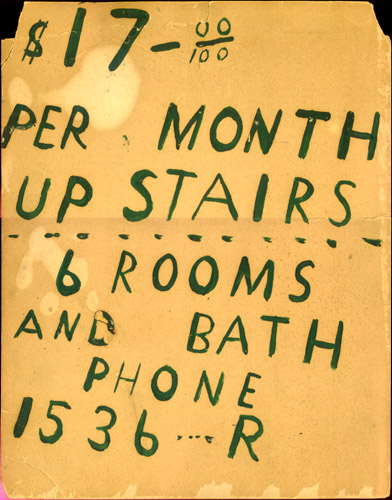 $17-00/100
PER MONTH
UP STAIRS
6 ROOMS
AND BATH
PHONE
1536...R